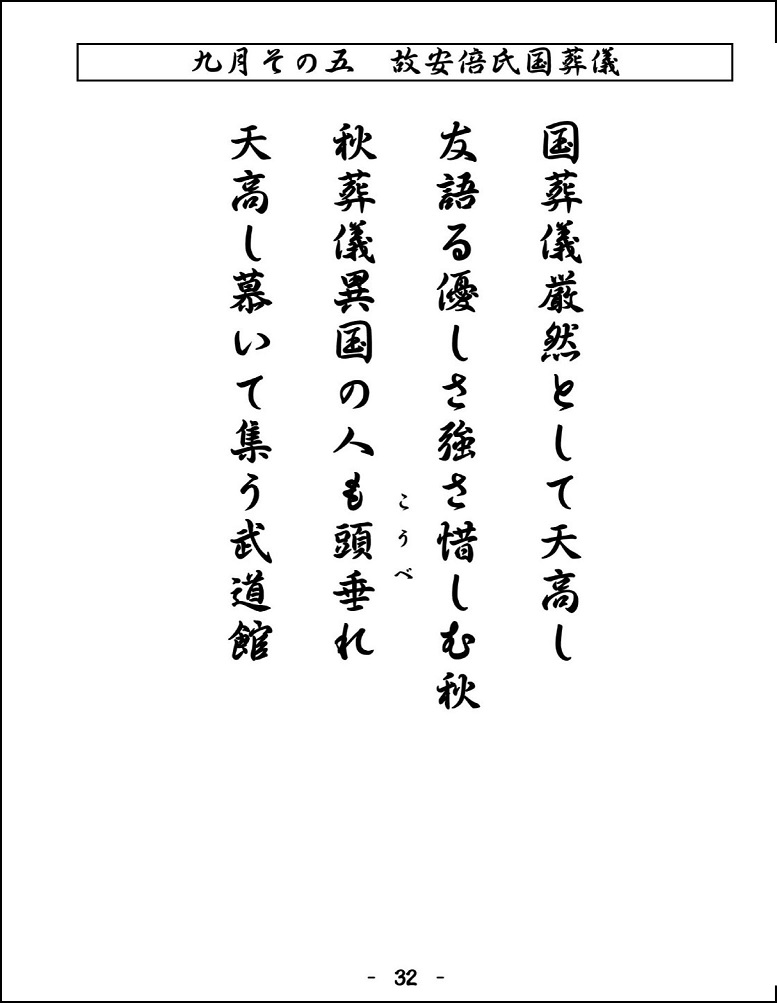 九月その五　故安倍氏国葬儀
国葬儀厳然として天高し
友語る優しさ強さ惜しむ秋
こうべ
秋葬儀異国の人も頭垂れ
天高し慕いて集う武道館
- 32 -